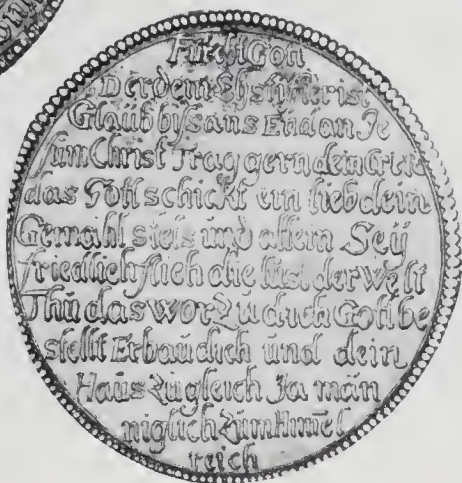 Fürcht Gott
Der dem Ehstifter ist
Glaüb biss ans End an Je
sum Christ Trag gern dein Creütz
das Gott schickt ein lieb dein
Gemahl stets und allein Seÿ
friedlich flich die lüst der Welt
Thü das worzü dich Gott be
stellt Erbaü dich und dein
Haüs zügleich Ja män
niglich züm Himel
reich